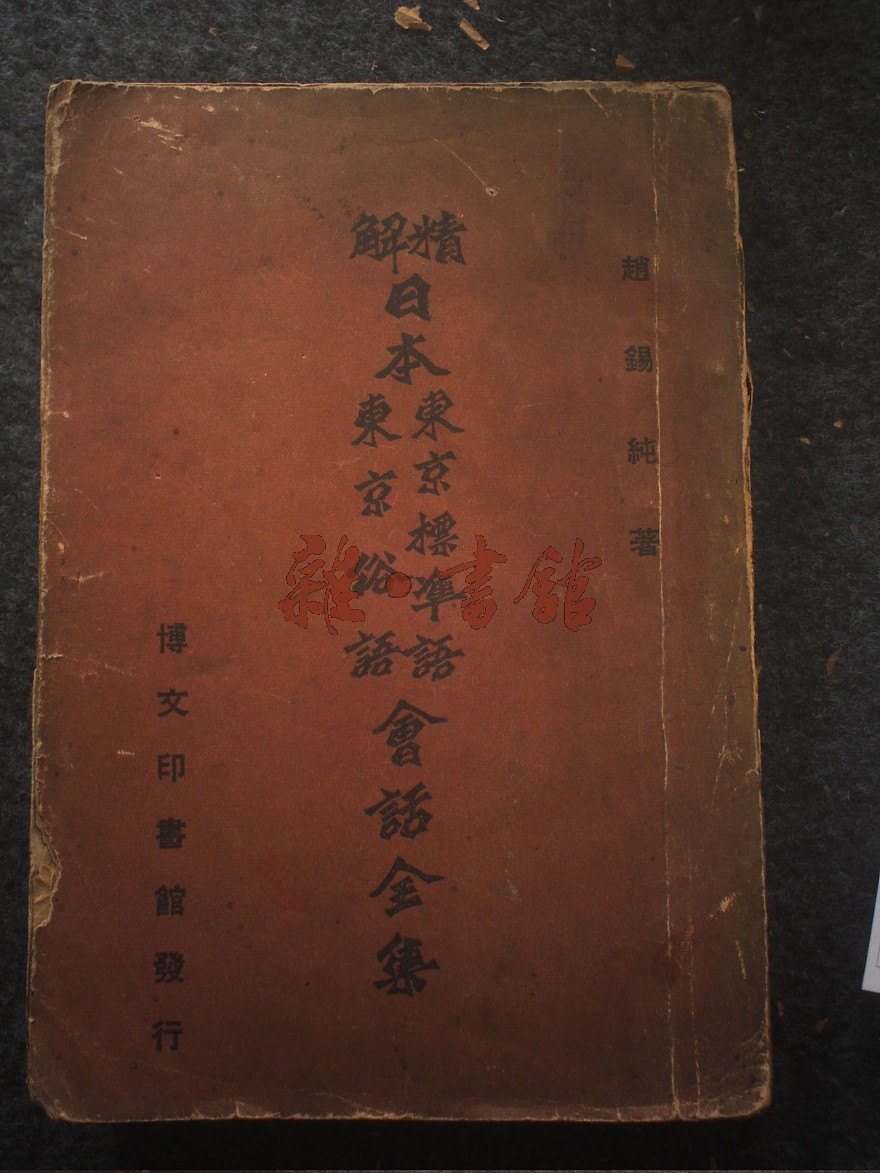 趙錫純著
精解
日本
東京標準語
東京俗語
會話全集
博文印書館發行
雜·書館